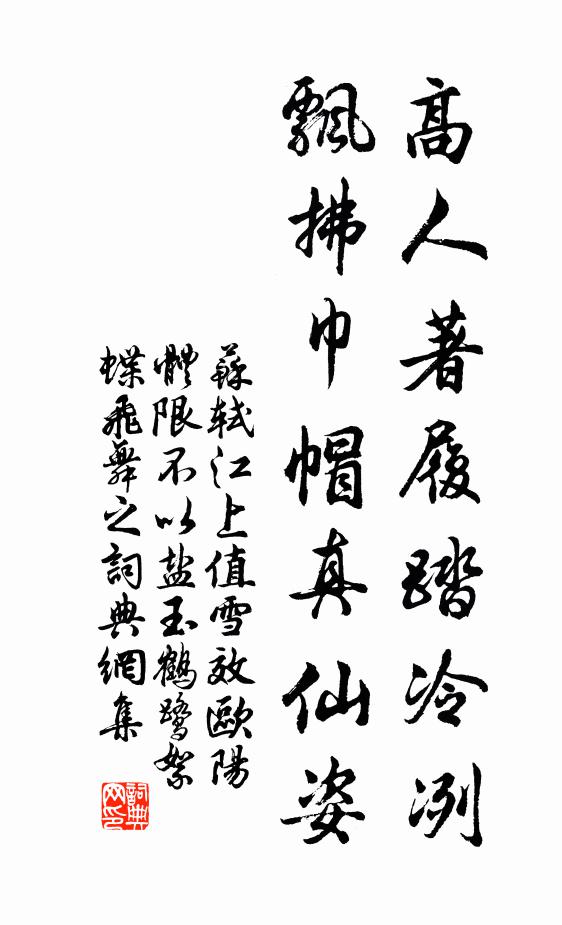 高人著履踏冷冽
飄拂巾帽真仙姿
蘇軾江上值雪效歐陽
體限不以盐玉鶴鷺絮
蝶飛舞之詞典網集
詞典网印